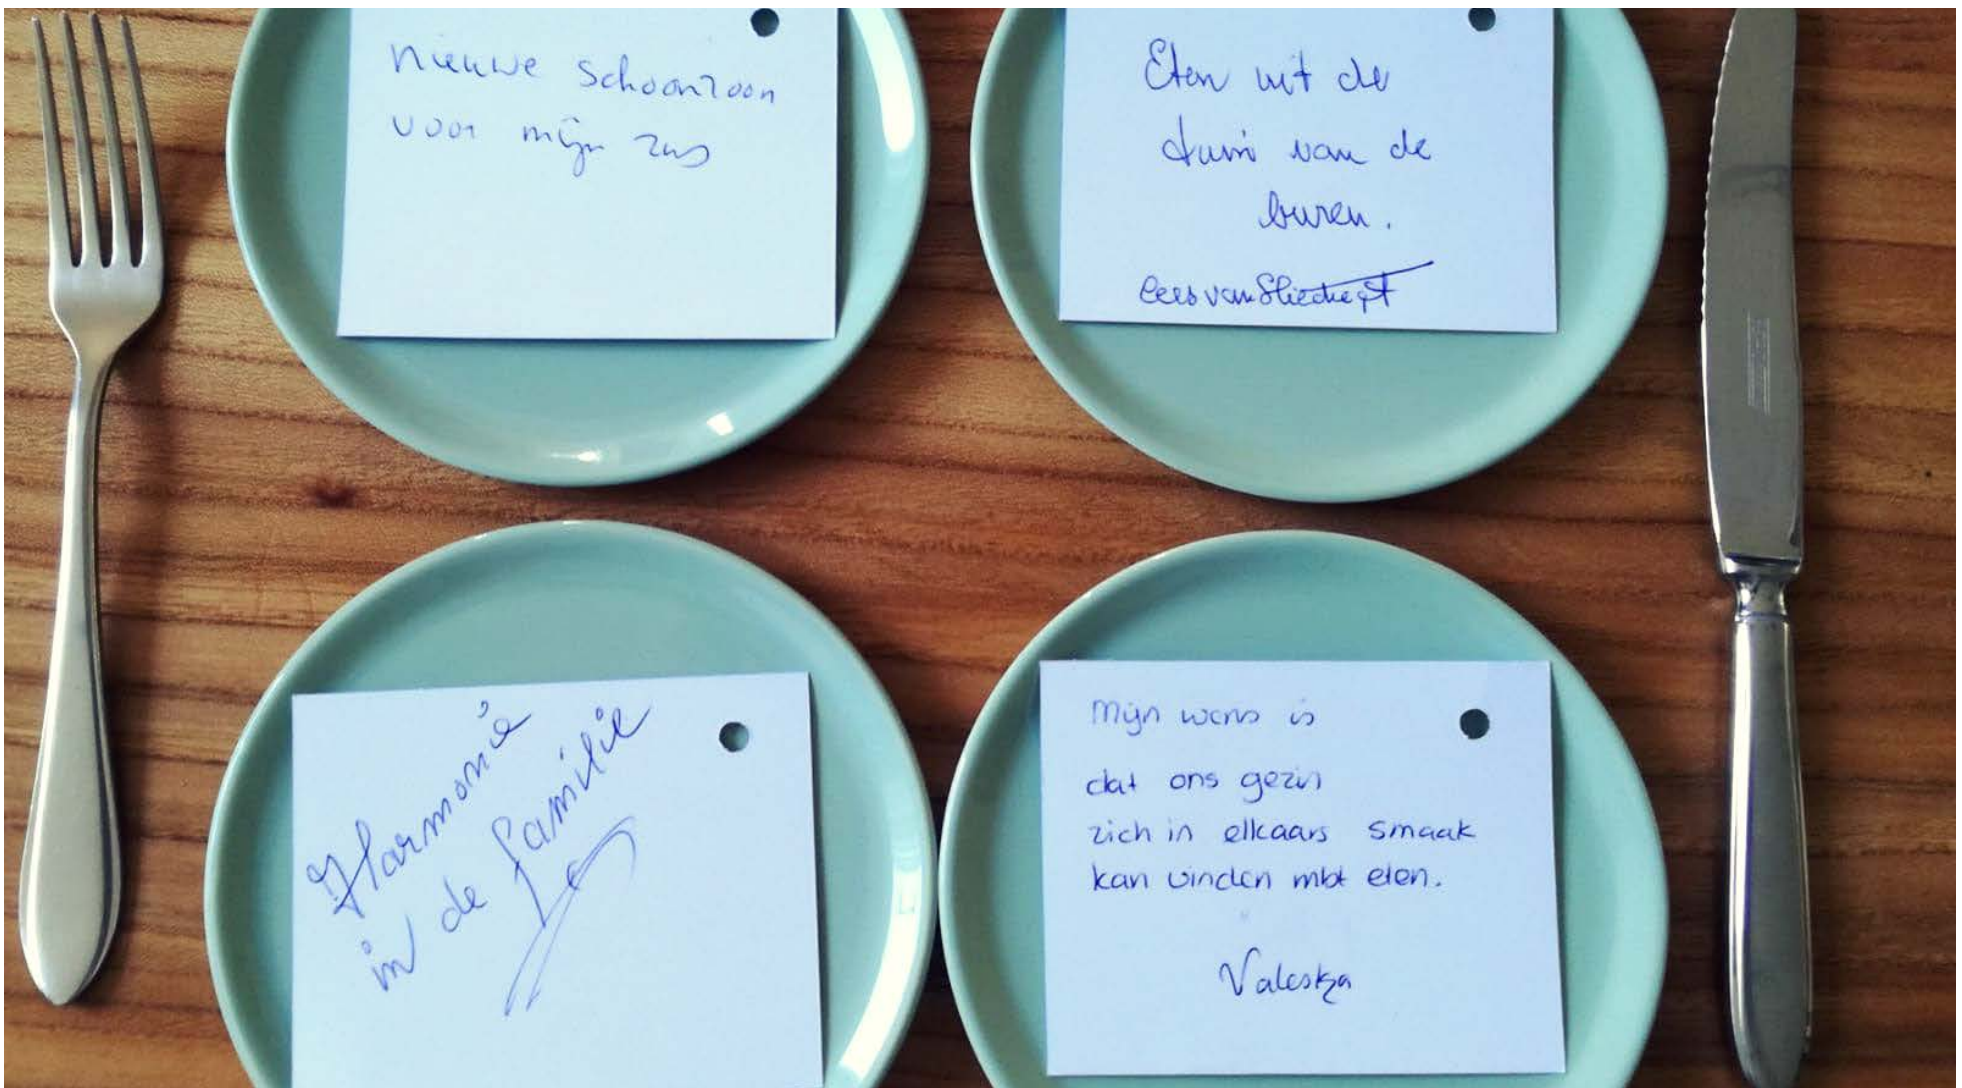 nieuwe schoonzoon
voor mijn zus
Eten uit de
tuin van de
buren.
Harmonie
in de familie
Mijn wens is
dat ons gezin
zich in elkaars smaak
kan vinden mbt eten.
Valeska